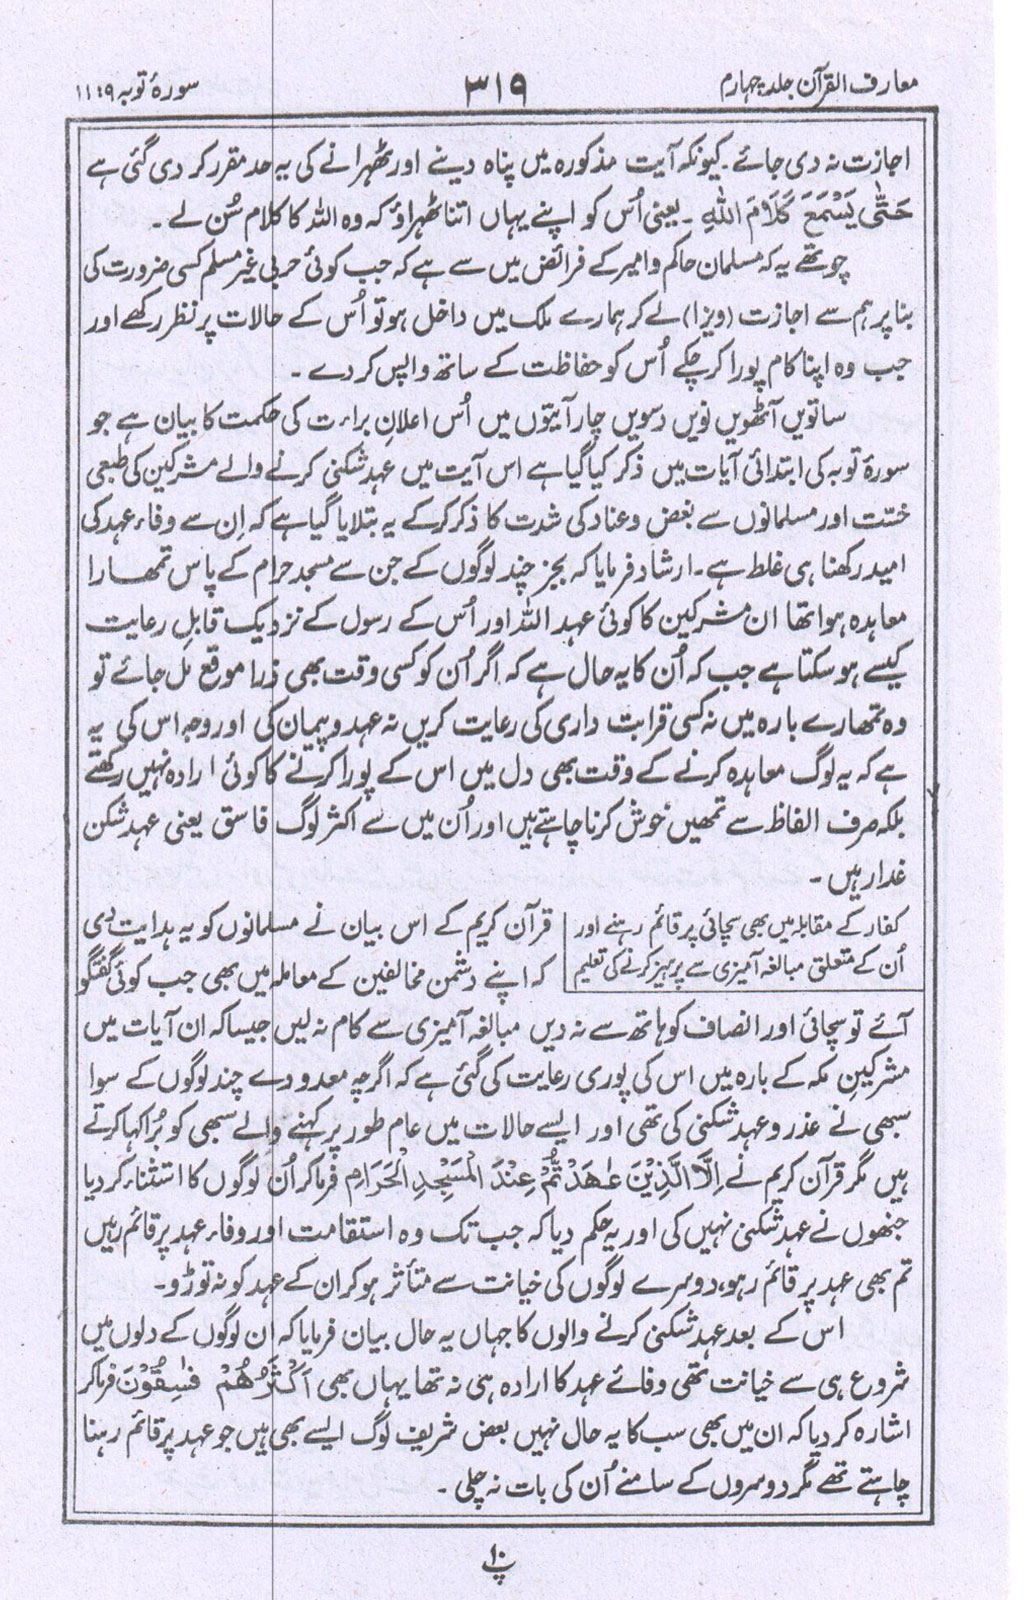 معارف القرآن جلد چہارم
۳۱۹
سورۂ توبہ ۹ : ۱۱
اجازت نہ دی جائے۔ کیونکہ آیت مذکورہ میں پناہ دینے اور ٹھہرانے کی یہ حد مقرر کر دی گئی ہے
حَتّٰى يَسْمَعَ كَلَامَ اللهِ ۔ یعنی اُس کو اپنے یہاں اتنا ٹھہراؤ کہ وہ اللہ کا کلام سُن لے۔
چوتھے یہ کہ مسلمان حاکم و امیر کے فرائض میں سے ہے کہ جب کوئی حربی غیر مسلم کسی ضرورت کی
بنا پر ہم سے اجازت (ویزا) لے کر ہمارے ملک میں داخل ہو تو اُس کے حالات پر نظر رکھے اور
جب وہ اپنا کام پورا کر چکے اُس کو حفاظت کے ساتھ واپس کر دے۔
ساتویں آٹھویں نویں دسویں چار آیتوں میں اُس اعلانِ براءت کی حکمت کا بیان ہے جو
سورۂ توبہ کی ابتدائی آیات میں ذکر کیا گیا ہے اس آیت میں عہد شکنی کرنے والے مشرکین کی طبعی
خسّت اور مسلمانوں سے بغض و عناد کی شدت کا ذکر کرکے یہ بتلایا گیا ہے کہ اِن سے وفاء عہد کی
امید رکھنا ہی غلط ہے۔ ارشاد فرمایا کہ بجز چند لوگوں کے جن سے مسجد حرام کے پاس تمھارا
معاہدہ ہوا تھا ان مشرکین کا کوئی عہد اللہ اور اُس کے رسول کے نزدیک قابلِ رعایت
کیسے ہو سکتا ہے جب کہ اُن کا یہ حال ہے کہ اگر اُن کو کسی وقت بھی ذرا موقع مل جائے تو
وہ تمھارے بارہ میں نہ کسی قرابت داری کی رعایت کریں نہ عہد و پیمان کی اور وجہ اس کی یہ
ہے کہ یہ لوگ معاہدہ کرنے کے وقت بھی دل میں اس کے پورا کرنے کا کوئی ارادہ نہیں رکھتے
بلکہ صرف الفاظ سے تمھیں خوش کرنا چاہتے ہیں اور اُن میں سے اکثر لوگ فاسق یعنی عہد شکن
غدار ہیں۔
کفار کے مقابلہ میں بھی سچائی پر قائم رہنے اور
اُن کے متعلق مبالغہ آمیزی سے پرہیز کرنے کی تعلیم
قرآن کریم کے اس بیان نے مسلمانوں کو یہ ہدایت دی
کہ اپنے دشمن مخالفین کے معاملہ میں بھی جب کوئی گفتگو
آئے تو سچائی اور انصاف کو ہاتھ سے نہ دیں مبالغہ آمیزی سے کام نہ لیں جیسا کہ ان آیات میں
مشرکینِ مکہ کے بارہ میں اس کی پوری رعایت کی گئی ہے کہ اگرچہ معدودے چند لوگوں کے سوا
سبھی نے عذر و عہد شکنی کی تھی اور ایسے حالات میں عام طور پر کہنے والے سبھی کو بُرا کہا کرتے
ہیں مگر قرآن کریم نے اِلَّا الَّذِيْنَ عٰهَدْتُّمْ عِنْدَ الْمَسْجِدِ الْحَرَامِ فرما کر اُن لوگوں کا استثناء کر دیا
جنھوں نے عہد شکنی نہیں کی اور یہ حکم دیا کہ جب تک وہ استقامت اور وفاء عہد پر قائم رہیں
تم بھی عہد پر قائم رہو، دوسرے لوگوں کی خیانت سے متأثر ہو کر ان کے عہد کو نہ توڑو۔
اس کے بعد عہد شکنی کرنے والوں کا جہاں یہ حال بیان فرمایا کہ ان لوگوں کے دلوں میں
شروع ہی سے خیانت تھی وفائے عہد کا ارادہ ہی نہ تھا یہاں بھی اَكْثَرُهُمْ فٰسِقُوْنَ فرما کر
اشارہ کر دیا کہ ان میں بھی سب کا یہ حال نہیں بعض شریف لوگ ایسے بھی ہیں جو عہد پر قائم رہنا
چاہتے تھے مگر دوسروں کے سامنے اُن کی بات نہ چلی۔
پ۱۰